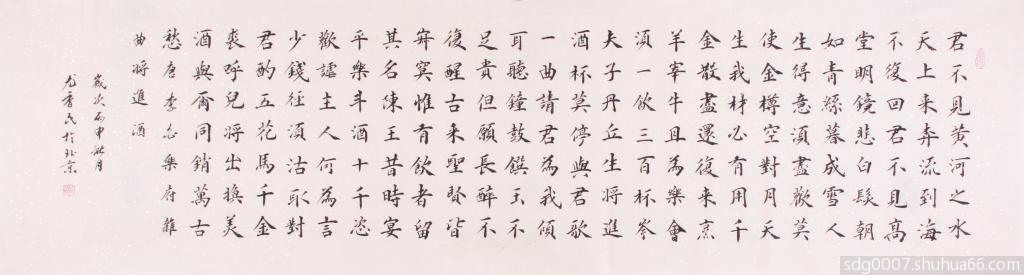 君不見黃河之水
天上来奔流到海
不復回君不見高
堂明鏡悲白髮朝
如青絲暮成雪人
生得意須盡歡莫
使金樽空對月天
生我材必有用千
金散盡還復来烹
羊宰牛且為樂會
須一飲三百杯岑
夫子丹丘生將進
酒杯莫停與君歌
一曲請君為我傾
耳聽鐘鼓饌玉不
足貴但願長醉不
復醒古来聖賢皆
寂寞惟有飲者留
其名陳王昔時宴
平樂斗酒十千恣
歡謔主人何為言
少錢徑須沽取對
君酌五花馬千金
裘呼兒將出換美
酒與爾同銷萬古
愁唐李白樂府雜
曲將進酒
歲次丙申秋月
尤香民於北京
sdg0007.shuhua66.com